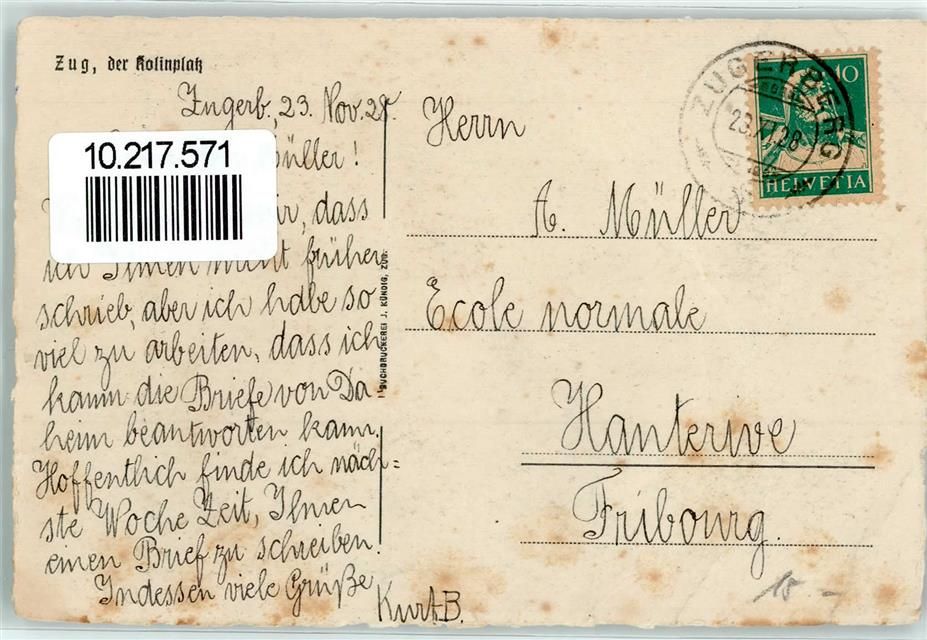 Zug, der Kolinplatz
Zugerb., 23. Nov. 28.
Müller!
10.217.571
dass
ich Ihnen nicht früher
schrieb, aber ich habe so
viel zu arbeiten, dass ich
kaum die Briefe von Da
heim beantworten kann.
Hoffentlich finde ich näch=
ste Woche Zeit, Ihnen
einen Brief zu schreiben.
Indessen viele Grüße
Kurt B.
BUCHDRUCKEREI J. KÜNDIG, ZUG.
ZUGERBERG
23.XI.28
10
HELVETIA
Herrn
A. Müller
Ecole normale
Hauterive
Fribourg.